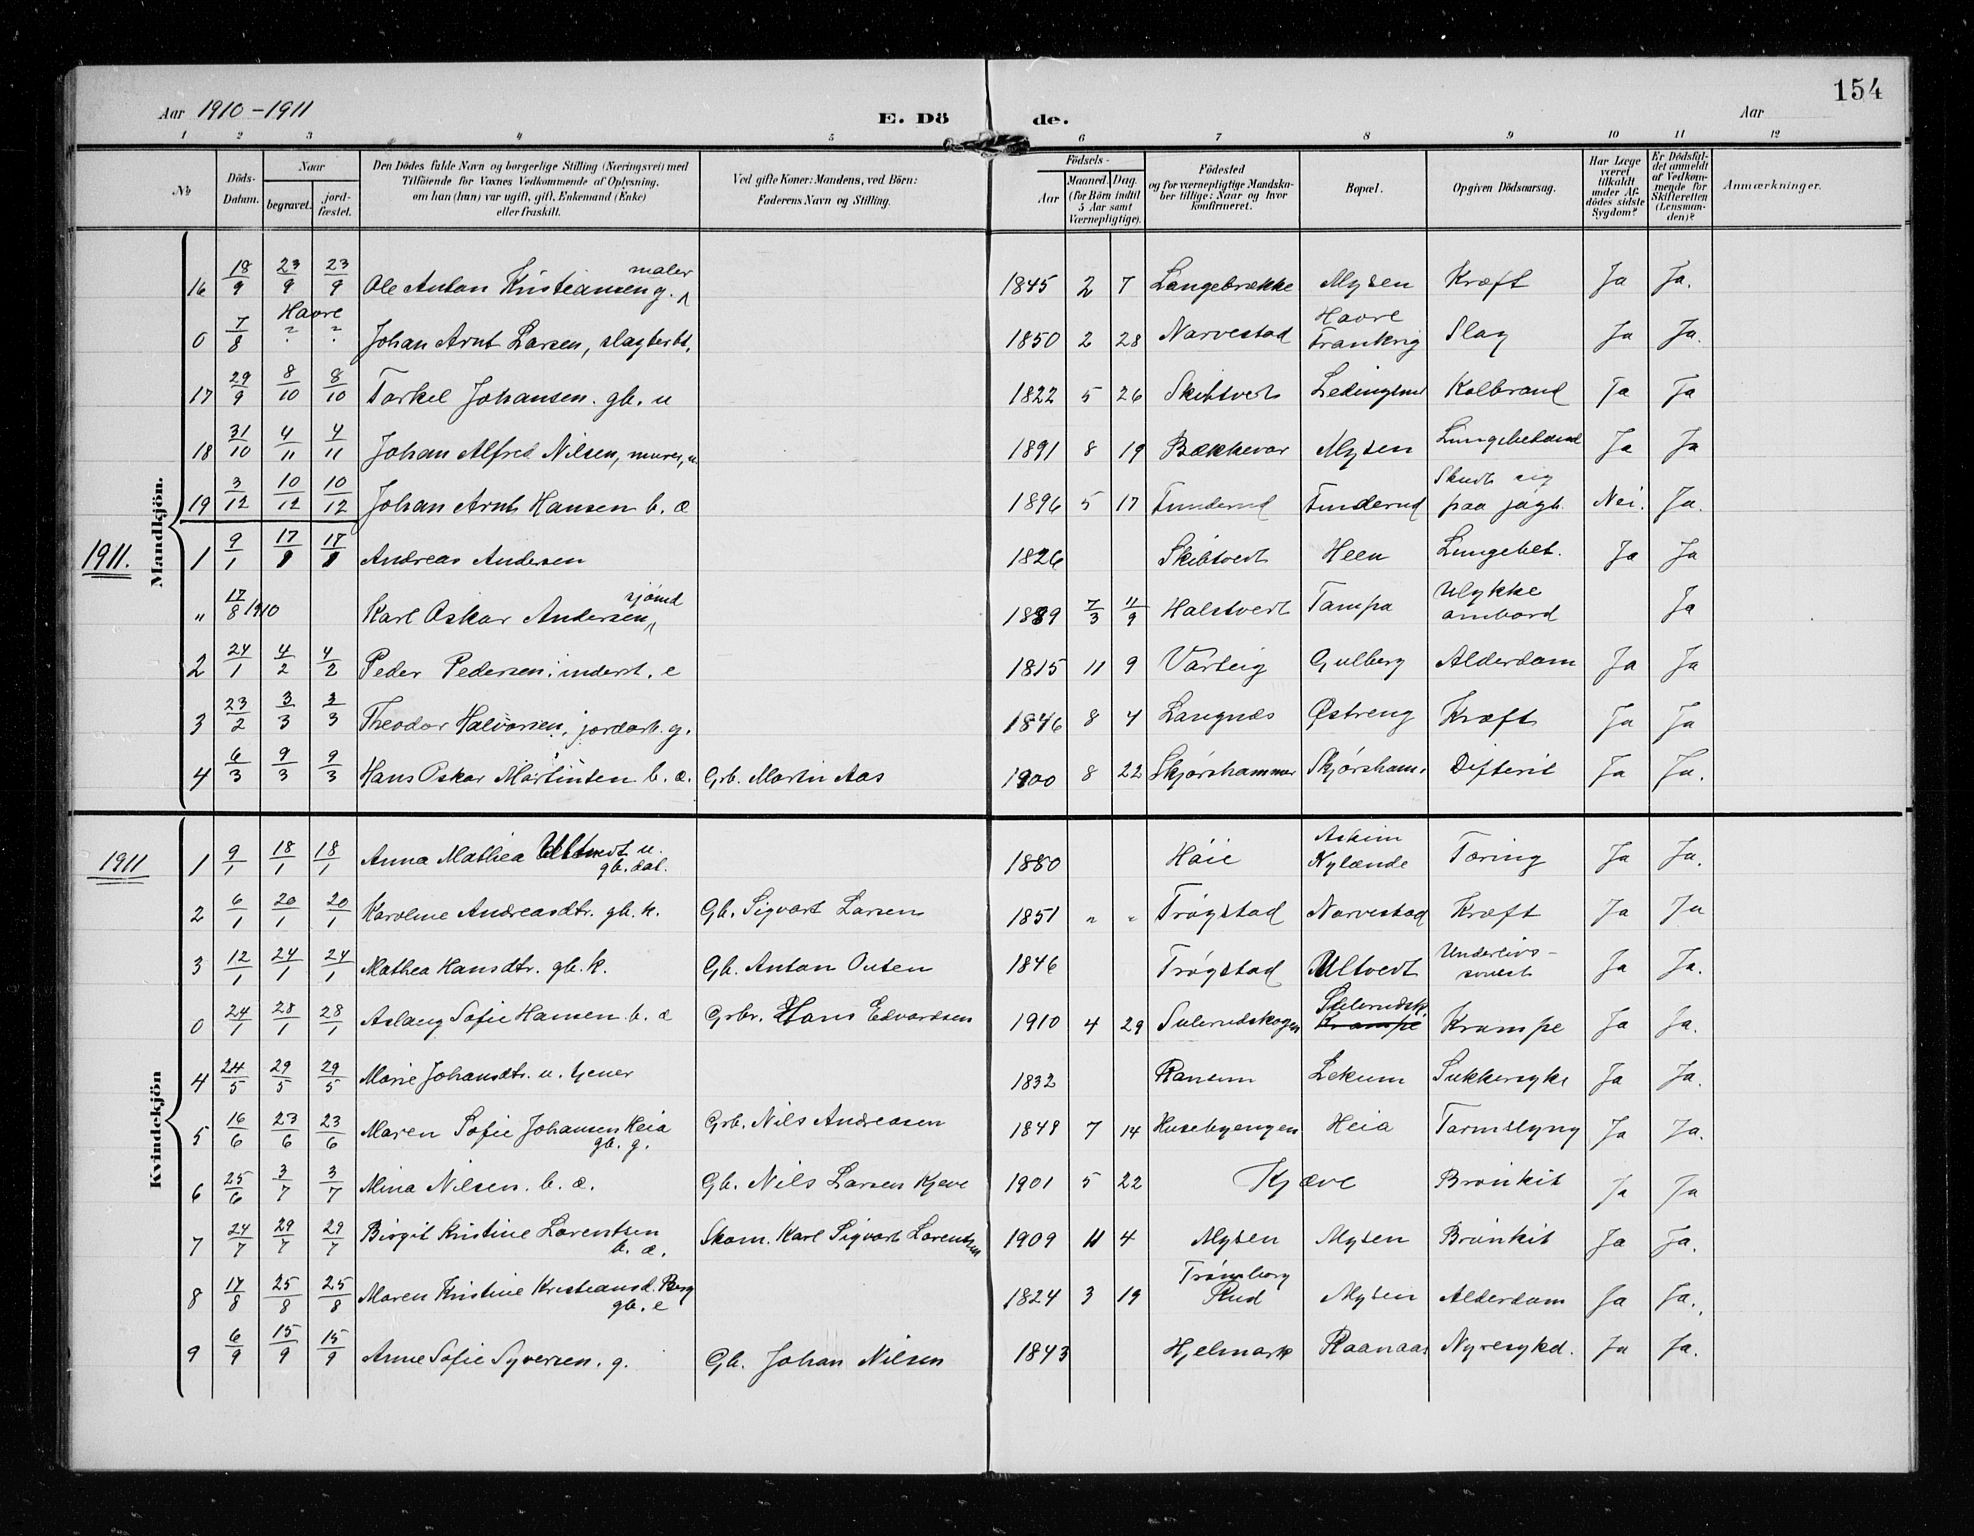 154
Aar 1910-1911
E. Dö de.
Aar
1 2 3 4 5 6 7 8 9 10 11 12
No
Döds-Datum.
Naar
begravet.
jord-fæstet.
Den Dödes fulde Navn og borgerlige Stilling (Næringsvei) med
Tilföiende for Voxnes Vedkommende af Oplysning,
om han (hun) var ugift, gift, Enkemand (Enke)
eller fraskilt.
Ved gifte Koner: Mandens, ved Börn:
Faderens Navn og Stilling.
Födsels-
Aar
Maaned. Dag.
(for Börn indtil 5 Aar samt Værnepligtige).
Födested
og for værnepligtige Mandskaber tillige: Naar og hvor konfirmeret.
Bopæl.
Opgiven Dödsaarsag.
Har Læge været tilkaldt under Afdödes sidste Sygdom?
Er Dödsfaldet anmeldt af Vedkommende for Skifteretten (Lensmanden)?
Anmærkninger.
Mandkjön.
16 18/9 23/9 23/9 Ole Anton Kristiansen g. maler 1845 2 7 Langebrække Mysen Kræft Ja Ja.
0 7/8 Havre " " Johan Arnt Larsen, slagterbt. 1850 2 28 Narvestad Havre Frankrig Slag Ja Ja.
17 29/9 8/10 8/10 Torkel Johansen. gb. u 1822 5 26 Skibtvedt Kolbrand Ja Ja
18 31/10 4/11 4/11 Johan Alfred Nilsen, murer, u. 1891 8 19 Bækkevar Mysen Lungebetænd Ja Ja
19 3/12 10/12 10/12 Johan Arnt Hansen b. æ 1896 5 17 Funderud Funderud Skudt sig paa jagt. Nei. Ja.
1911.
1 9/1 17/1 17/1 Andreas Andersen 1826 Skibtvedt Heen Lungebet. Ja Ja
" 17/8 1910 Karl Oskar Andersen, sjömd 1889 7/3 11/9 Halstvedt Tampa Ulykke ombord Ja
2 24/1 4/2 4/2 Peder Pedersen, inderst. e 1815 11 9 Varteig Gulberg Alderdom Ja Ja
3 23/2 3/3 3/3 Theodor Halvorsen, jordarb. g. 1846 8 4 Langnæs Østreng Kræft Ja Ja
4 6/3 9/3 9/3 Hans Oskar Martinsen b. æ. Grb. Martin Aas 1900 8 22 Skjørshammer Skjørsham. Difterit Ja Ja.
1911
Kvindekjön
1 9/1 18/1 18/1 Anna Mathea Ultvedt u. gb. dat. 1880 Höie Askim Nylænde Tæring Ja Ja.
2 6/1 20/1 20/1 Karoline Andreasdtr. gb. k. Gb. Sigvart Larsen 1851 " " Trögstad Narvestad Kræft Ja Ja
3 12/1 24/1 24/1 Mathea Hansdtr. gb. k. Gb. Anton Olsen 1846 Trögstad Ultvedt Underlivs- Ja Ja.
0 24/1 28/1 28/1 Aslaug Sofie Hansen. b. æ Grbr. Hans Edvardsen 1910 4 29 Sulerudskogen Sulerudsk. Krampe Krampe Ja Ja.
4 24/5 29/5 29/5 Marie Johansdtr. u. tjener 1832 Ranum Lekum Sukkersyke Ja Ja.
5 16/6 23/6 23/6 Maren Sofie Johansen Heia gb. g. Grb. Nils Andreasen 1848 7 14 Husebyengen Heia Tarmslyng Ja Ja.
6 25/6 3/7 3/7 Mina Nilsen. b. æ. Gb. Nils Larsen Kjeve 1901 5 22 Kjæve Bronkit Ja Ja
7 24/7 29/7 29/7 Birgit Kristine Lorentsen b. æ. Skom. Karl Sigvart Lorentsen 1909 11 4 Mysen Mysen Bronkit Ja Ja.
8 17/8 25/8 25/8 Maren Kristine Kristiansd. Berg gb. e 1824 3 19 Trömborg Rud Mysen Alderdom Ja Ja.
9 6/9 15/9 15/9 Anne Sofie Syversen. g. Gb. Johan Nilsen 1843 Hjelmark Raanaas Nyresykd. Ja Ja.